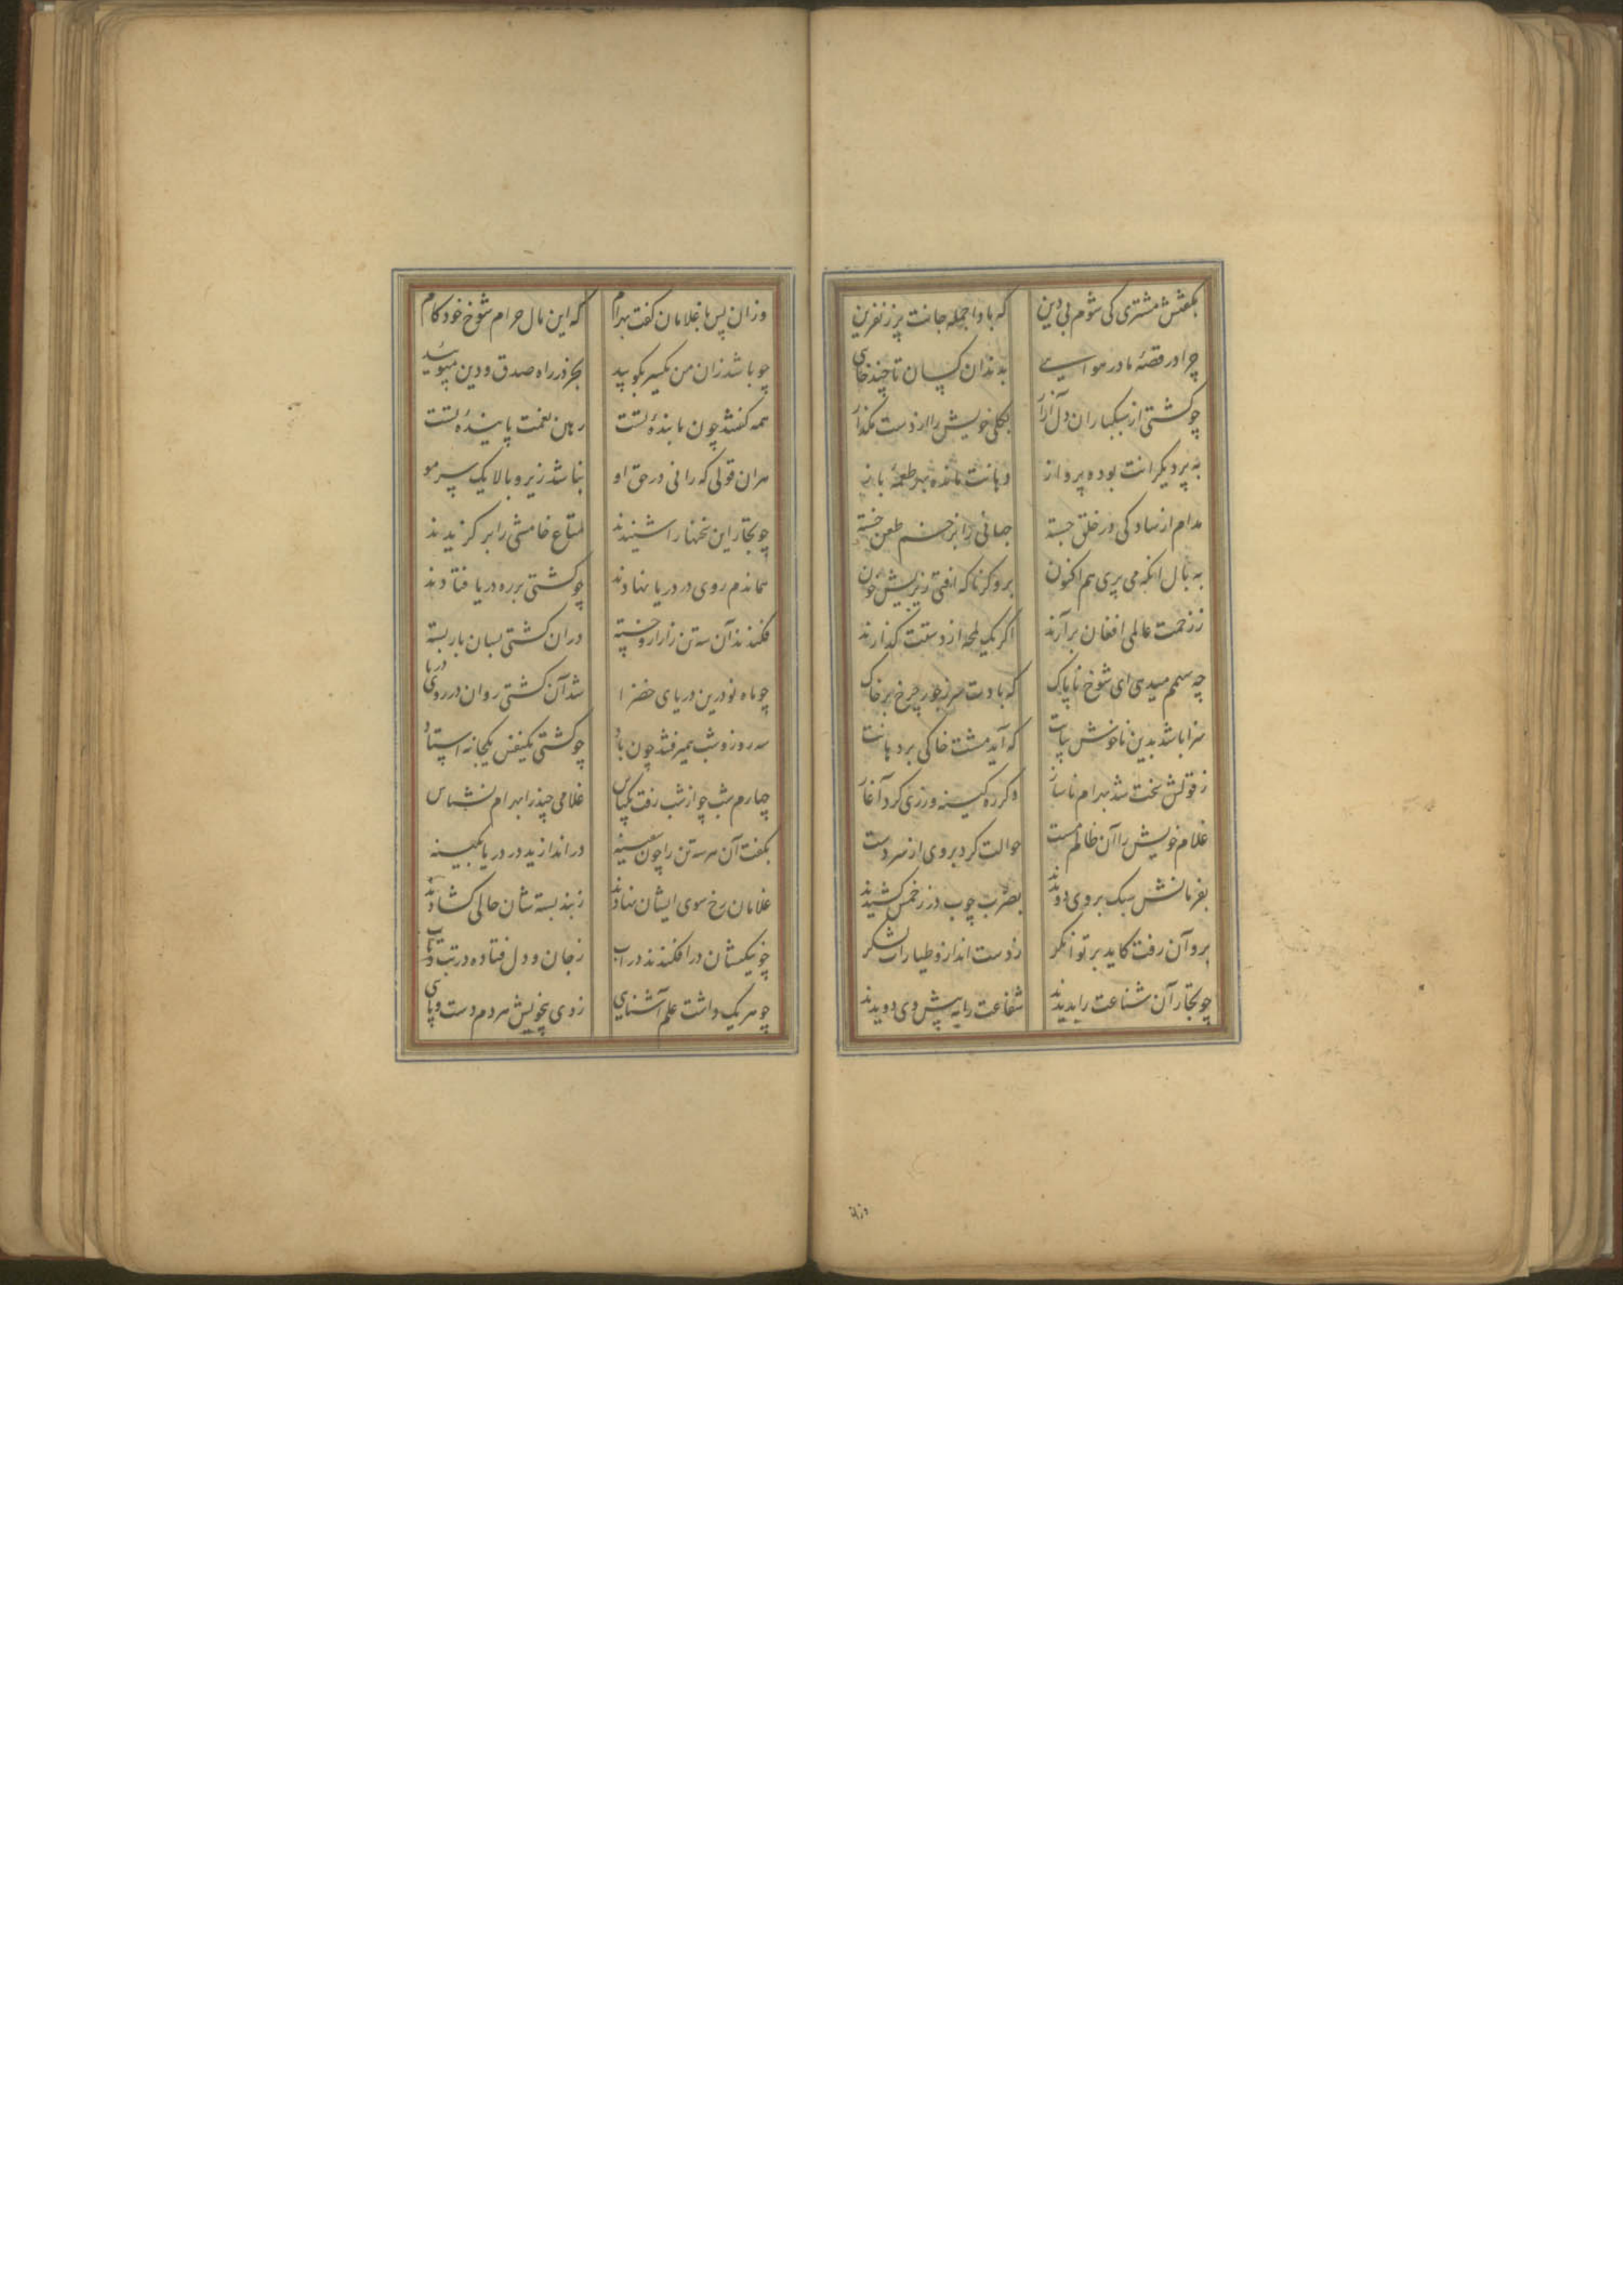 بگفتش مشتری کی شوم بی دین که بادا جمله جانت پر ز نفرین
چرا در قصهٔ ما در مواسیی بدندان کسان تا چند خایی
چو کشتی از سبکباران دل آزار بکلی خویش را از دست مگذار
به پر دیگرانت بوده پرواز دهانت مانده بهر طعمه باز
مدام از سادگی در خلق جسته جهانی را بزخم طعن خسته
به بال آنکه می پری هم اکنون
ز زخمت عالمی افغان برآرند اگر یک لمحه از دستت گذارند
چه سهمم میدهی ای شوخ ناپاک که بادت سر ز جور چرخ بر خاک
سزا باشد بدین ناخوش بیانت که آید مشت خاکی بر دهانت
ز قولش سخت شد بهرام ناساز دگر ره کینه ورزی کرد آغاز
غلام خویش را آن ظالم مست حوالت کرد بر وی از سر دست
بفرمانش سبک بر وی دویدند بضرب چوب در زخمش کشیدند
برو آن رفت کاید بر توانگر ز دست انداز و طیارات لشکر
چو تجار آن شناعت را بدیدند شفاعت را به پیش وی دویدند
وزان
وزان پس با غلامان گفت بهرام که این مال حرام شوخ خودکام
چو باشد زان من یکسر بگویید بجز در راه صدق و دین مپویید
همه گفتند چون ما بندهٔ تست رهین نعمت پایندهٔ تست
هران قولی که رانی در حق او نباشد زیر و بالا یک سر مو
چو تجار این سخنها را شنیدند متاع خامشی را بر گزیدند
هماندم روی در دریا نهادند چو کشتی بر ره دریا فتادند
فکندند آن سه تن را زار و خسته دران کشتی بسان بار بسته
چو ماه نو درین دریای خضرا شد آن کشتی روان در روی دریا
سه روز و شب همیرفتند چون باد چو کشتی یکنفس یکجا نه استاد
چهارم شب چو از شب رفت یکپاس غلامی چند را بهرام نشناس
بگفت آن هر سه تن را چون سفینه در اندازید در دریا بکینه
غلامان رخ سوی ایشان نهادند ز بند بسته شان حالی گشادند
چو یکیکشان در افکندند در آب ز جان و دل فتاده در تب و تاب
چو هر یک داشت علم آشنایی زدی بخویش هر دم دست و پایی